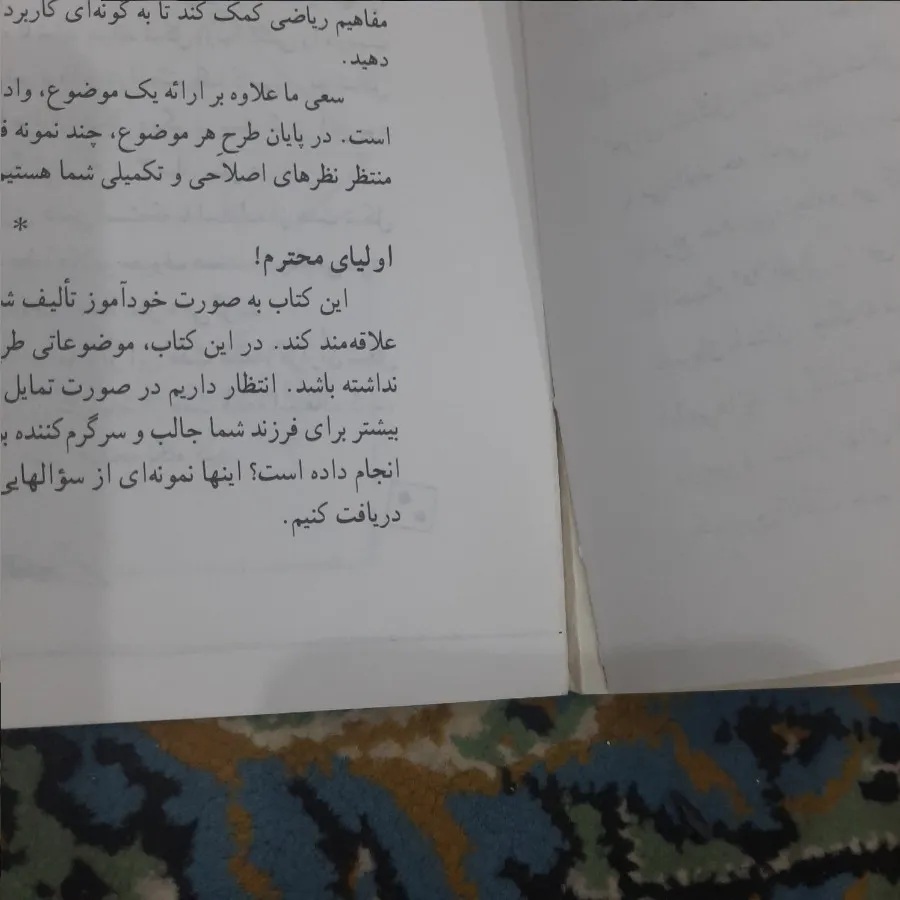 مفاهیم ریاضی کمک کند تا به گونه‌ای کاربرد
دهید.
سعی ما علاوه بر ارائه یک موضوع، واد
است. در پایان طرحِ هر موضوع، چند نمونه
منتظر نظرهای اصلاحی و تکمیلی شما هستیم
*
اولیای محترم!
این کتاب به صورت خودآموز تألیف
علاقه‌مند کند. در این کتاب، موضوعاتی
نداشته باشد. انتظار داریم در صورت تمایل
بیشتر برای فرزند شما جالب و سرگرم‌کننده
انجام داده است؟ اینها نمونه‌ای از سؤالهایی
دریافت کنیم.